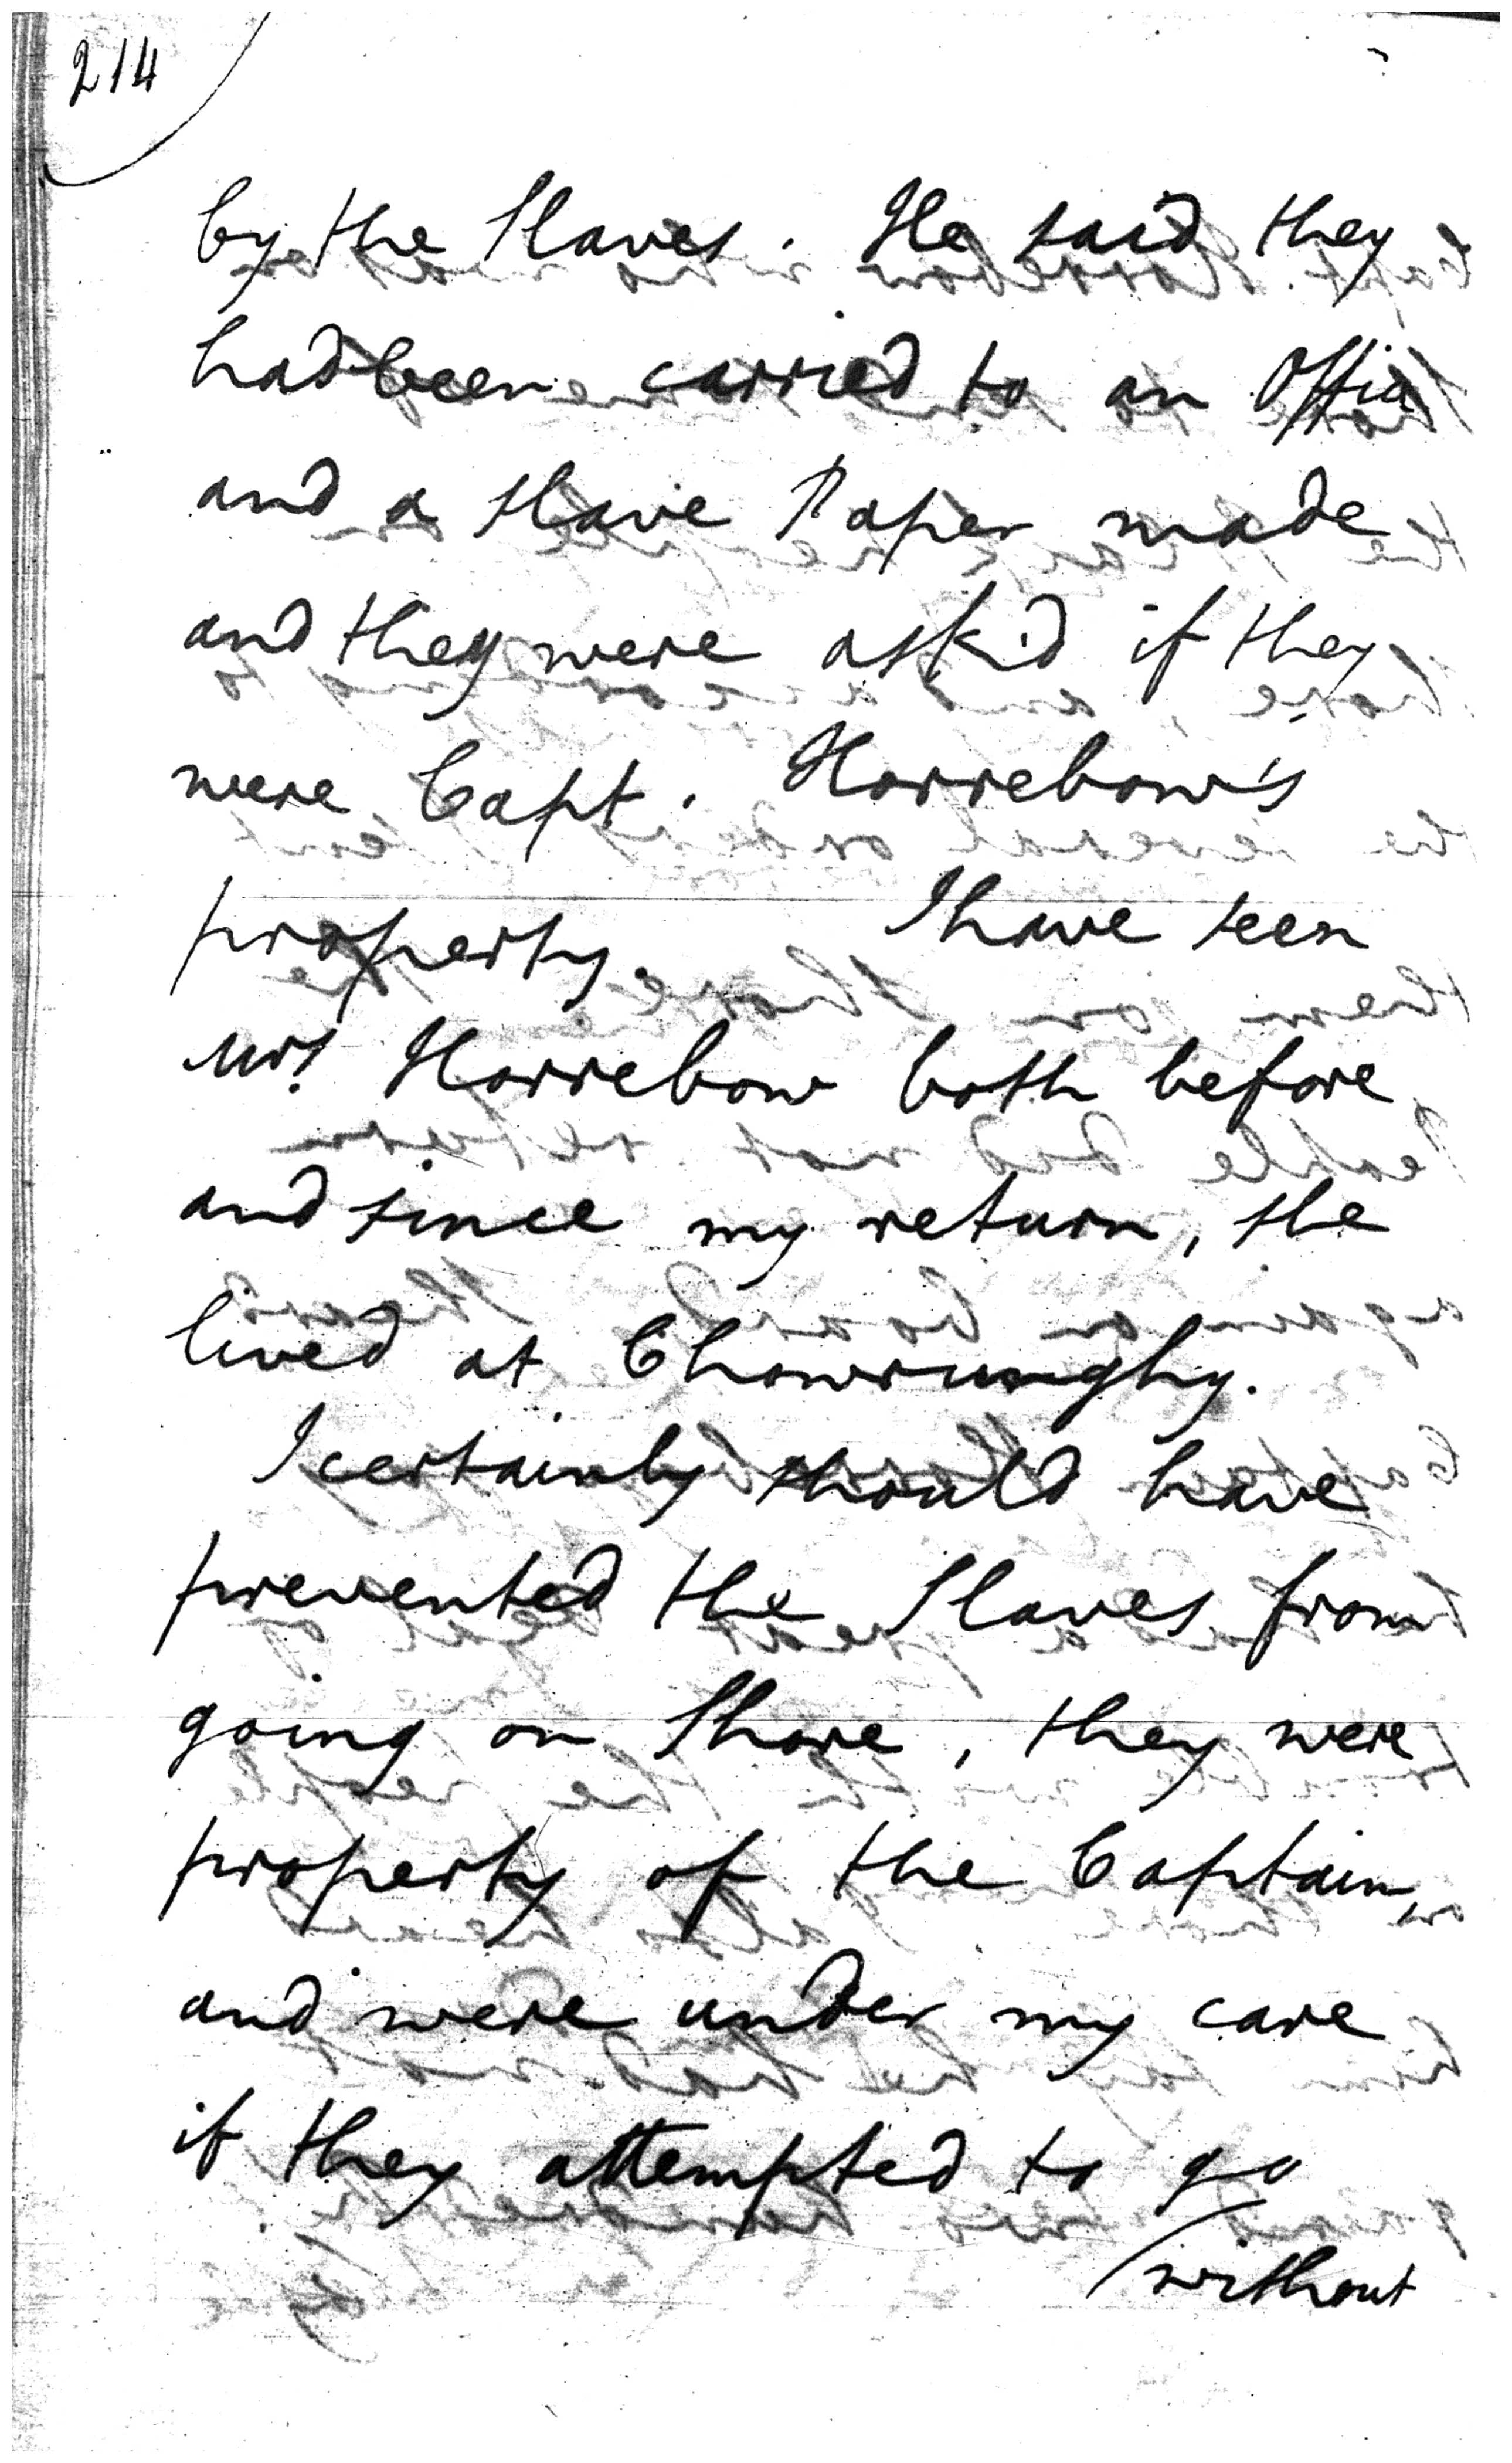 214
by the Slaves. He said they
had been carried to an Office
and a Slave Paper made
and they were ask'd if they
were Capt. Horrebow's
property. I have seen
Mrs Horrebow both before
and since my return, she
lived at Chowrunghy.
I certainly should have
prevented the Slaves from
going on Shore, they were
property of the Captain,
and were under my care
if they attempted to go
without